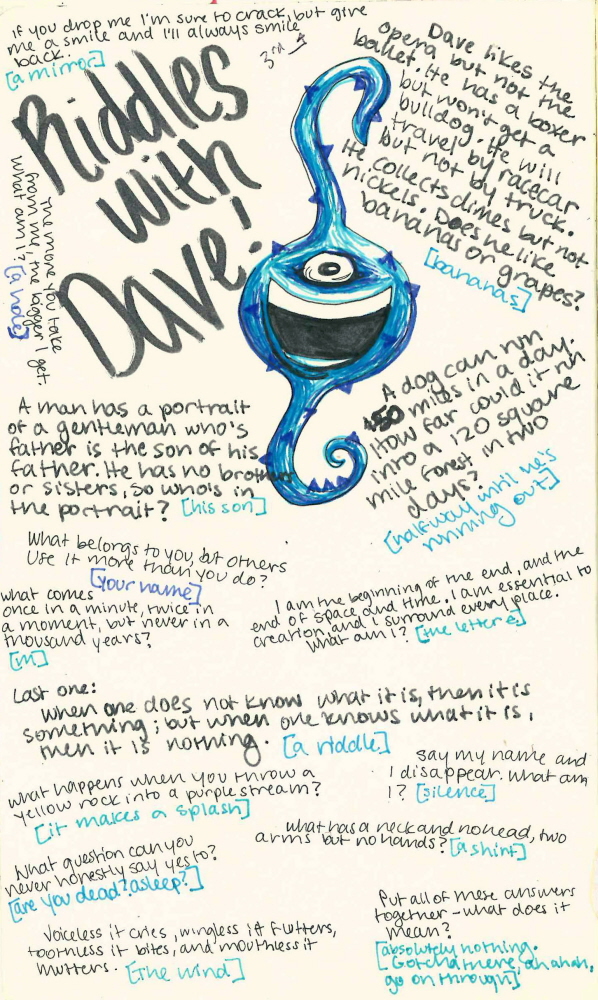 If you drop me I'm sure to crack, but give
me a smile and I'll always smile
back.
[a mirror]
3rd
Riddles
with
Dave!
Dave likes the
opera but not the
ballet. He has a boxer
but won't get a
bulldog. He will
travel by racecar
but not by truck.
He collects dimes but not
nickels. Does he like
bananas or grapes?
[bananas]
The more you take
from me, the bigger I get.
What am I? [a hole]
A dog can run
450 miles in a day.
How far could it run
into a 120 square
mile forest in two
days?
[halfway until he's
running out]
A man has a portrait
of a gentleman who's
father is the son of his
father. He has no brothers
or sisters, so who's in
the portrait? [his son]
What belongs to you, but others
use it more than you do?
[your name]
what comes
once in a minute, twice in
a moment, but never in a
thousand years?
[m]
I am the beginning of the end, and the
end of space and time. I am essential to
creation, and I surround every place.
What am I? [the letter e]
Last one:
When one does not know what it is, then it is
something; but when one knows what it is,
then it is nothing. [a riddle]
what happens when you throw a
yellow rock into a purple stream?
[it makes a splash]
say my name and
I disappear. what am
I? [silence]
what has a neck and no head, two
arms but no hands? [a shirt]
What question can you
never honestly say yes to?
[are you dead? asleep?]
Voiceless it cries, wingless it flutters,
toothless it bites, and mouthless it
mutters. [the wind]
Put all of these answers
together - what does it
mean?
[absolutely nothing.
Gotcha there, ah ahah,
go on through]